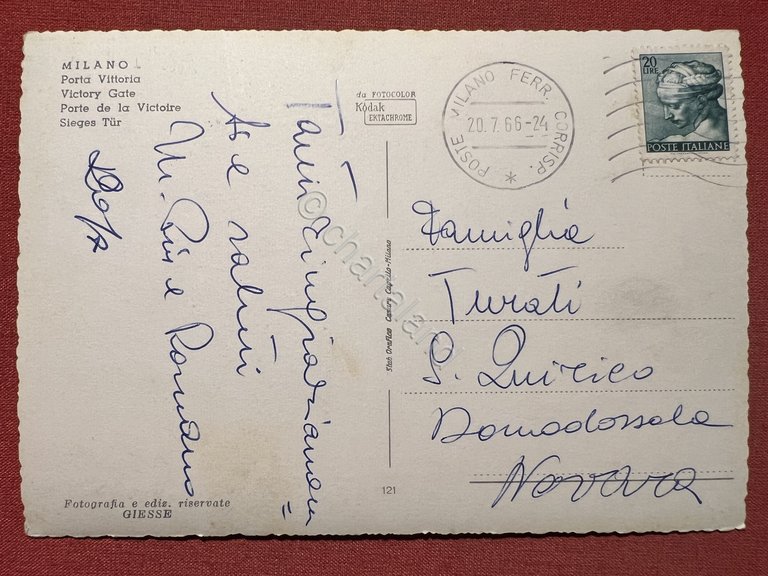 MILANO -
Porta Vittoria
Victory Gate
Porte de la Victoire
Sieges Tür
da FOTOCOLOR
Kodak
EKTACHROME
POSTE MILANO FERR. CORRISP.
20.7.66-24
20
LIRE
POSTE ITALIANE
Tanti ringraziamen
=
ti e saluti
M. Pia e Romano
Famiglia
Turati
S. Quirico
Domodossola
Novara
Stab. Grafico Cesare Capello - Milano
121
Fotografia e ediz. riservate
GIESSE
© chartaland